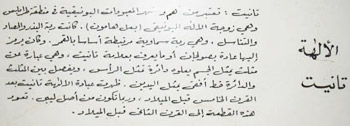 الآلهة
تانيت
تانيت : تعتبر من المعبودات البونيقية في منطقة طرابلس
وهي زوجة الإله البونيقي (بعل هامون). كانت ربة البذر والحصاد
والتناسل، وهي ربة سماوية مرتبطة أساسا بالقمر. وكان يرمز
إليها عادة بصولجان أو ما يعرف بعلامة تانيت، وهي عبارة عن
مثلث يمثل الجسم يعلوه دائرة تمثل الرأس، ويفصل بين المثلث
والدائرة خط أفقي يمثل اليدين. ظهرت عبادة الآلهة تانيت بعد
القرن الخامس قبل الميلاد، وربما تكون من أصل ليبي. تعود
هذه القطعة إلى القرن الثاني قبل الميلاد.